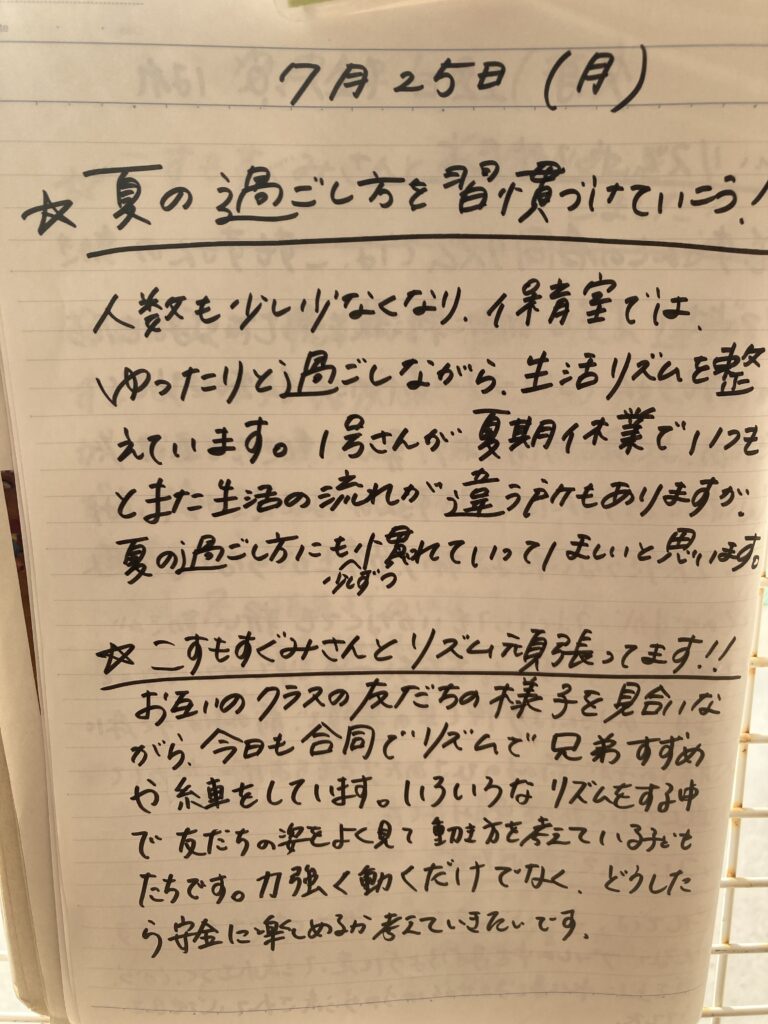 7月25日(月)
☆夏の過ごし方を習慣づけていこう!
人数も少し少なくなり、保育室では、
ゆったりと過ごしながら、生活リズムを整
えています。1号さんが夏期休業でいつも
とまた生活の流れが違う所もありますが、
夏の過ごし方にも慣れていってほしいと思います。
少しずつ
☆こすもすぐみさんとリズム頑張ってます!!
お互いのクラスの友だちの様子を見合いな
がら、今日も合同でリズムで兄弟すずめ
や糸車をしています。いろいろなリズムをする中
で友だちの姿をよく見て動き方を考えている子ども
たちです。力強く動くだけでなく、どうした
ら安全に楽しめるか考えていきたいです。